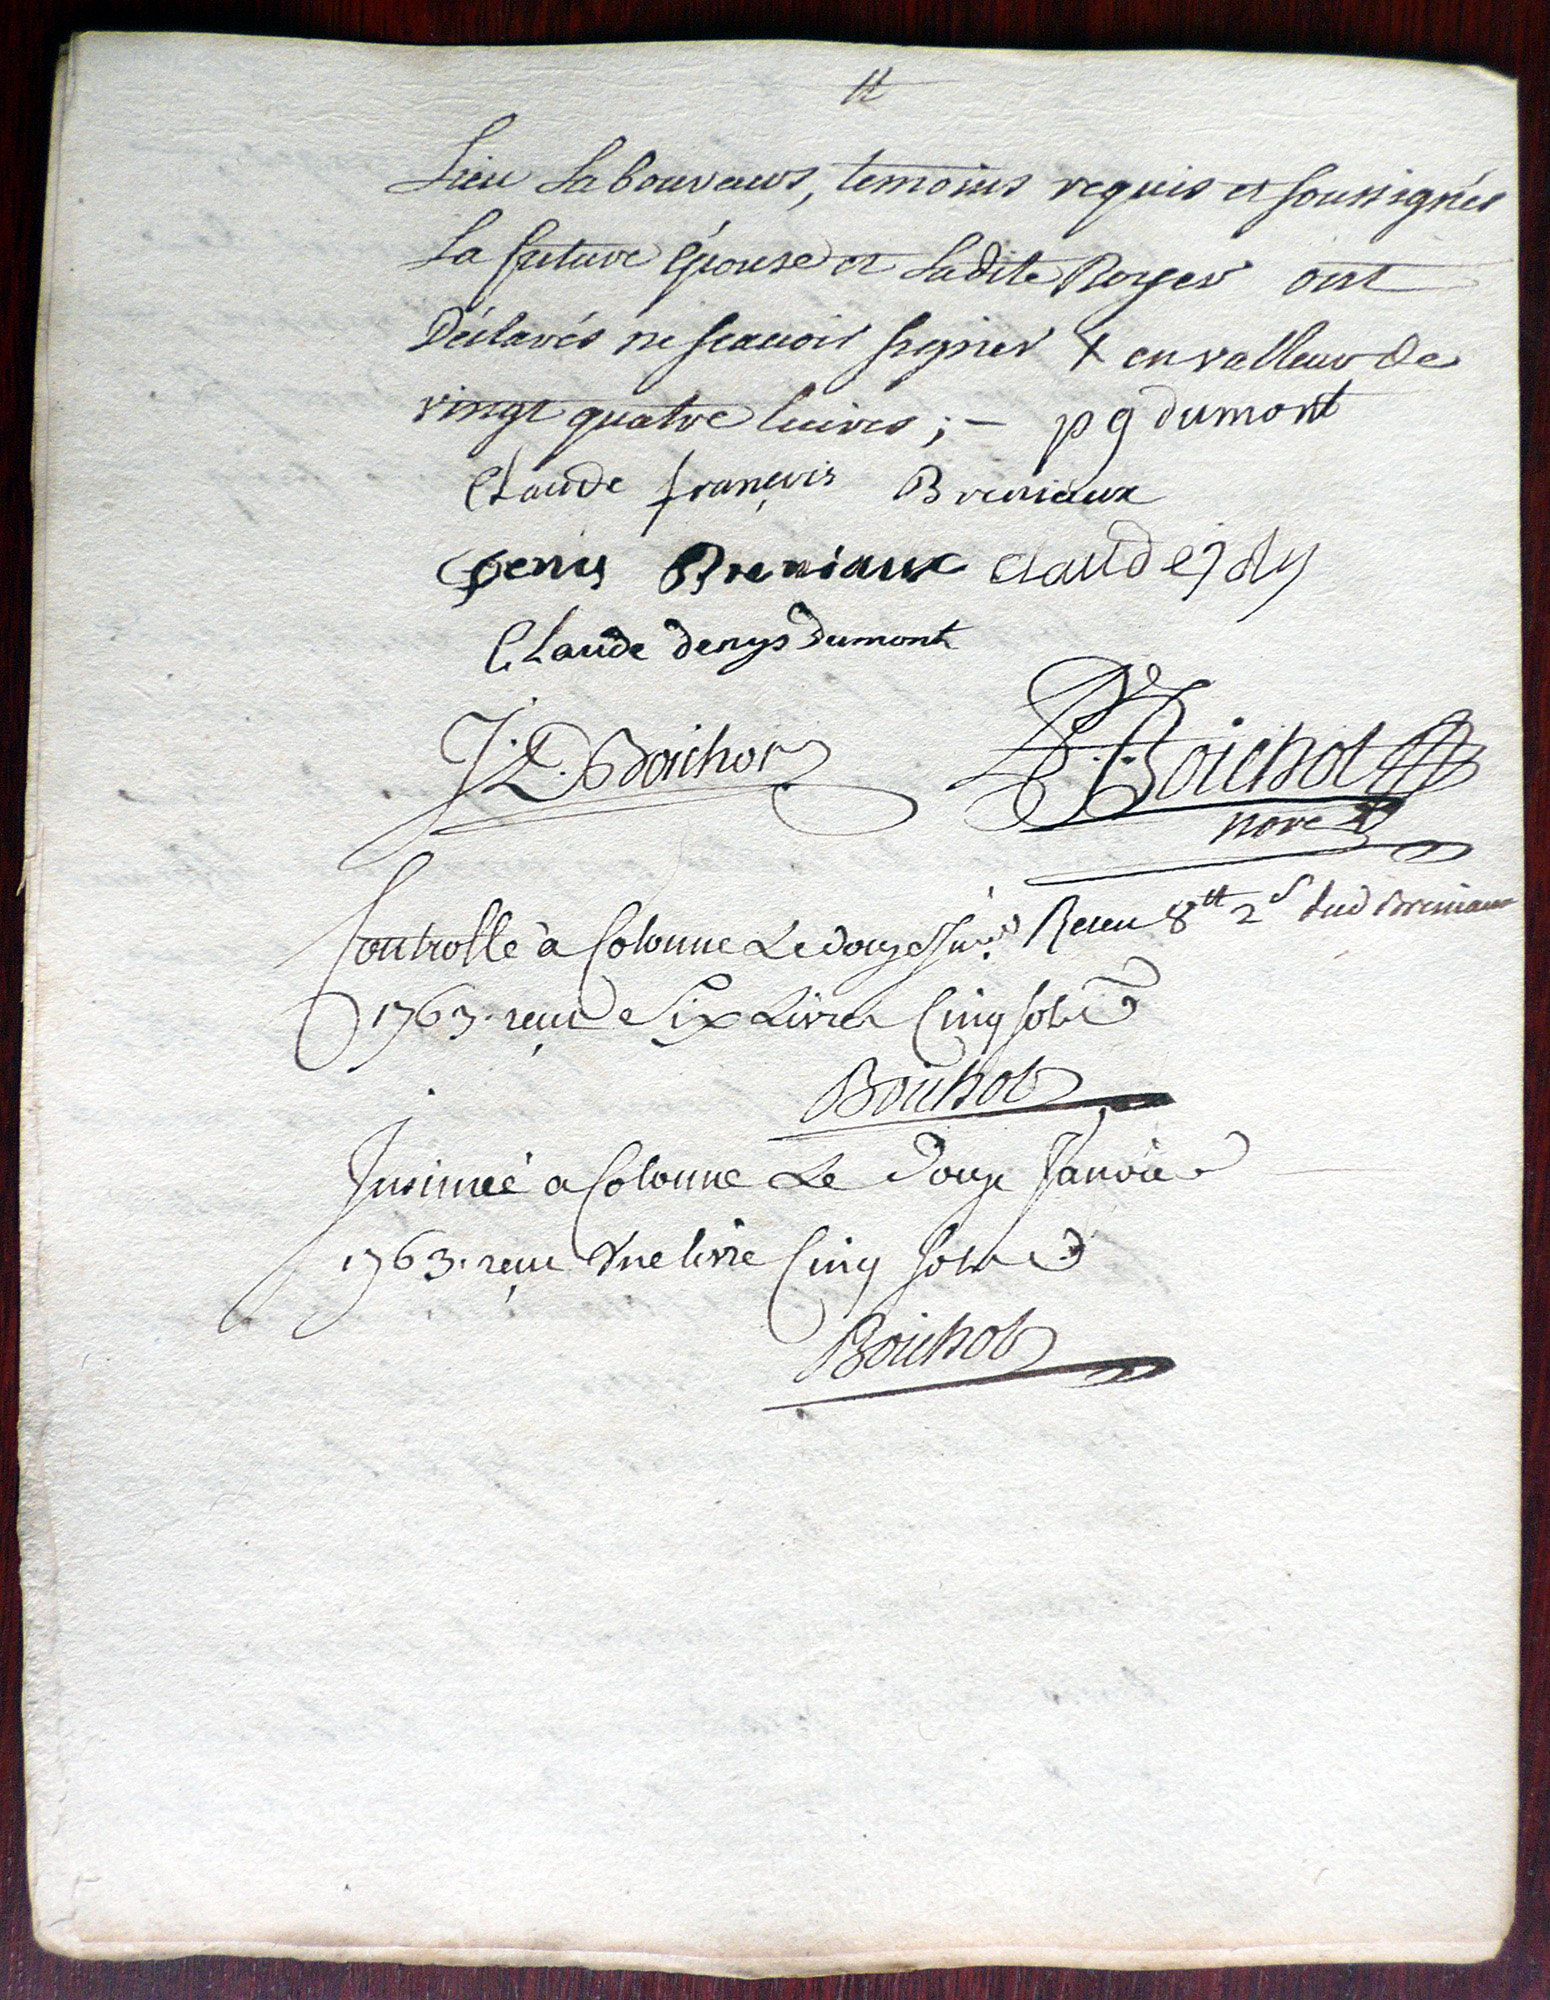 tt
Lieu Laboureurs, temoins requis et soussignés
La future Épouse et Ladite Royer ont
Déclarés ne scauoir signer + en valleur de
vingt quatre liures ; — p g dumont
Claude françois Breniaux
Denis Breniaux Claude joly
Claude denys Dumont
J. L. Boichot P. Boichot
nore
Controlle à Colonne Le douze Jner Receu 8tt 2s dud Breniaux
1763. reçu Six Livres Cinq sols
Boichot
Insinué a Colonne Le douze Janvier
1763. reçu Vne livre Cinq sols
Boichot